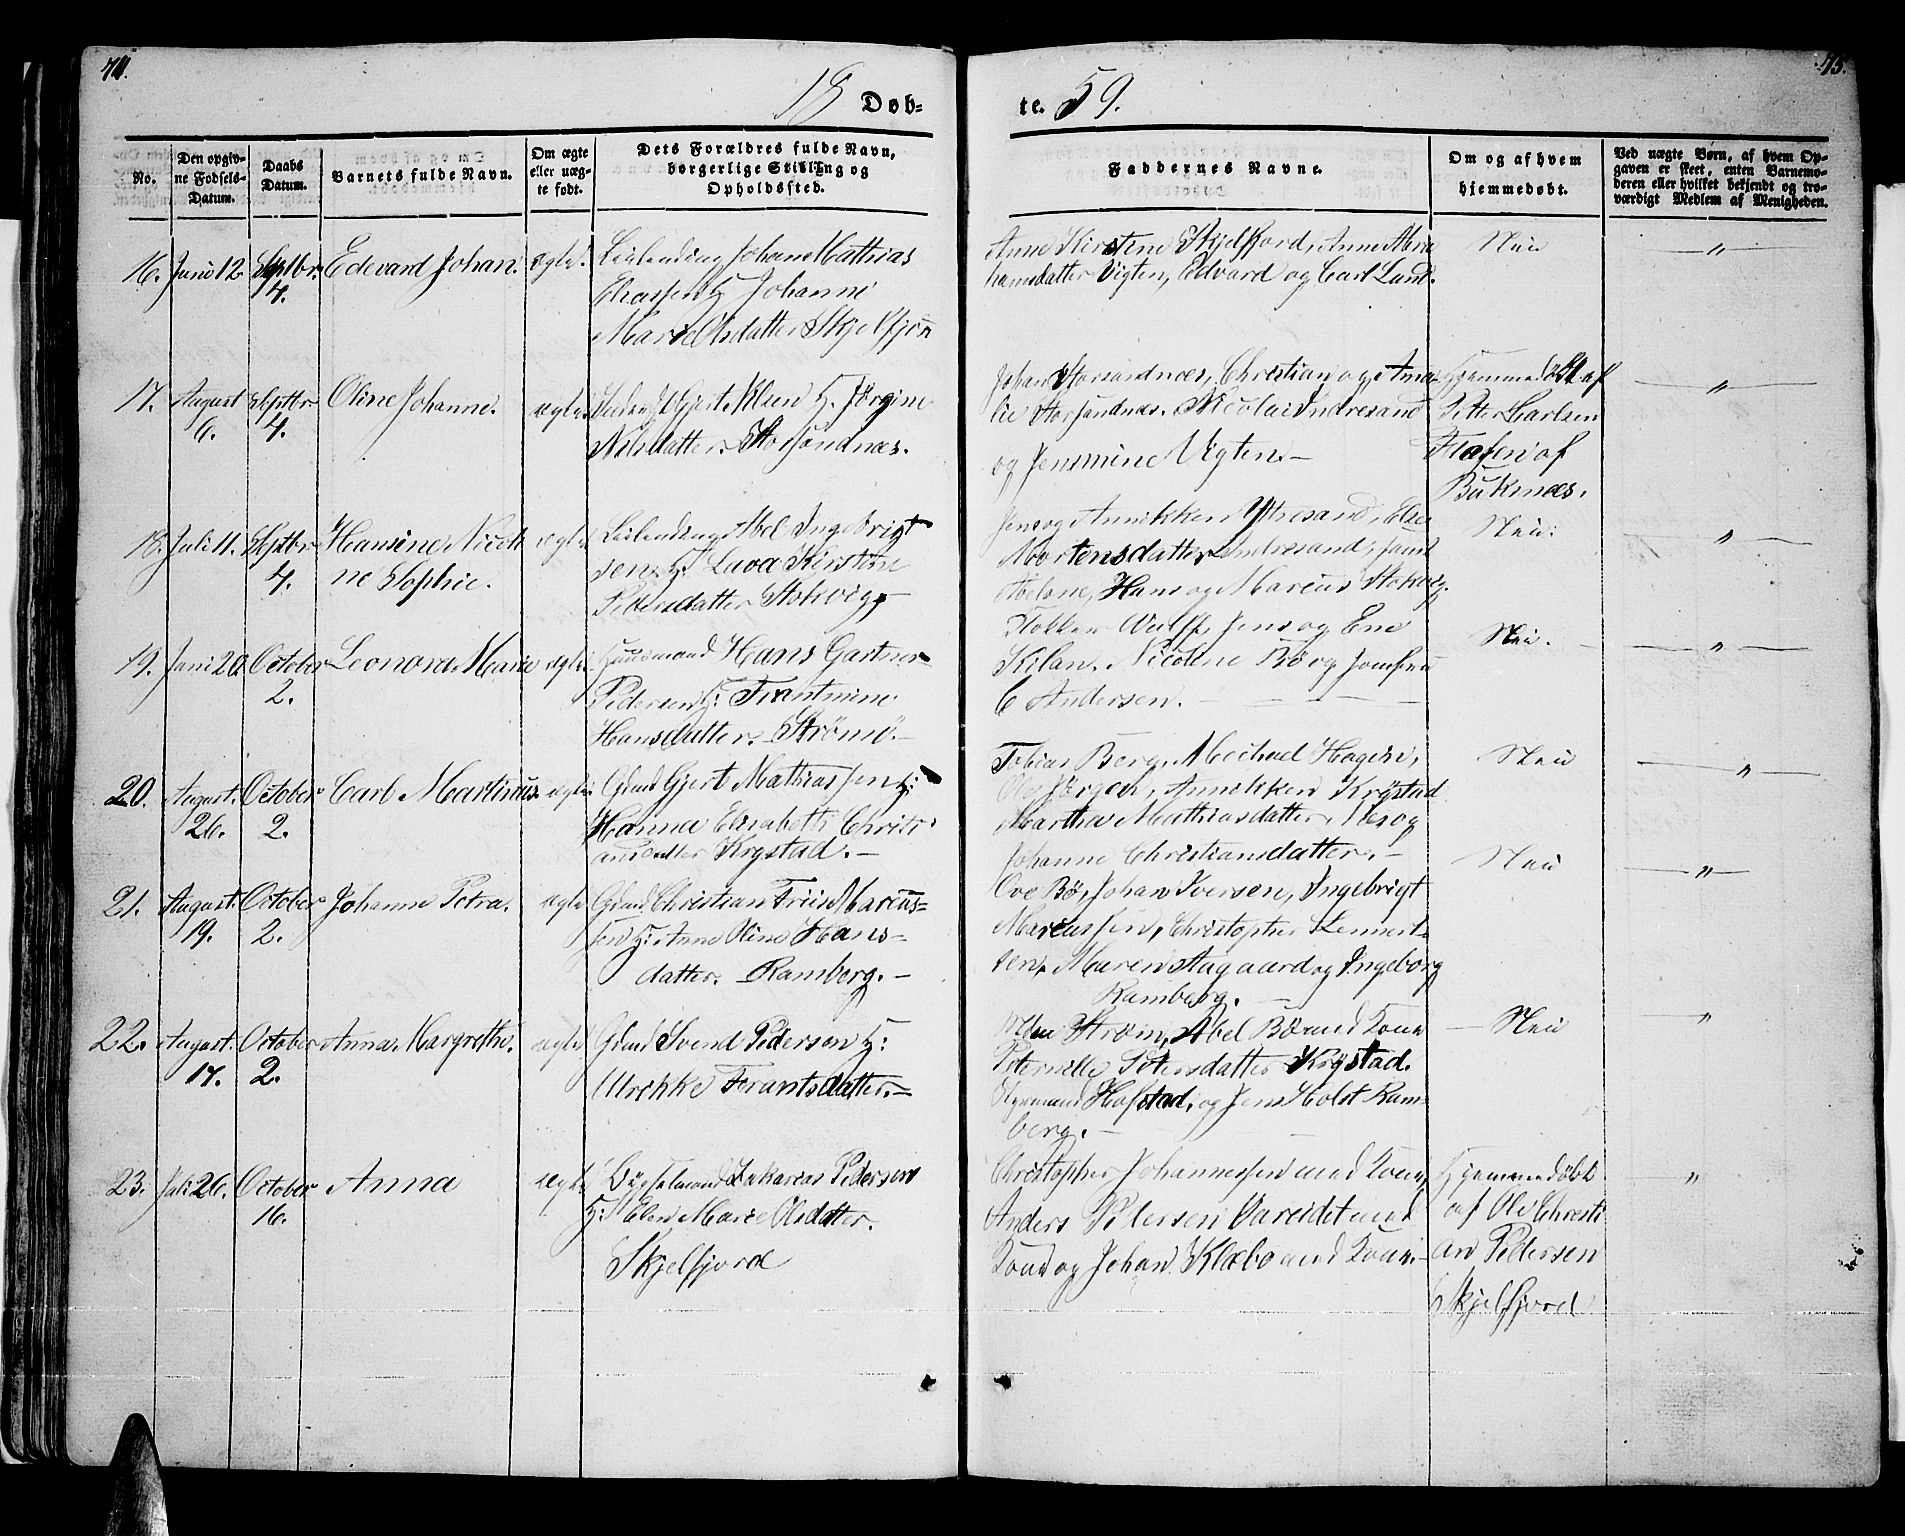 74.
75.
18 Døb-
te. 59.
No.
Den opgiv-
ne Fødsels-
Datum.
Daabs
Datum.
Barnets fulde Navn.
Om ægte
eller uæg-
te født.
Dets Forældres fulde Navn,
borgerlige Stilling og
Opholdssted.
Faddernes Navne.
Om og af hvem
hjemmedøbt.
Ved uægte Børn, af hvem Op-
gaven er skeet, enten Barnemo-
deren eller hvilket bekjendt og tro-
værdigt Medlem af Menigheden.
16. Juni 12 Septbr.
4.
Edevard Johan.
ægte.
Leilending Johan Mathias
H Johanne
Marie Olsdatter Skjelfjord
Anne Kirstine Skjelfjord, Anne Abra
hamsdatter Vigten, Edvard og Carl Lund.
Nei
"
17. August
6.
Septbr
4.
Oline Johanne.
ægte
Gjert Olsen H. Jørgine
Nilsdatter. Storsandnæs.
Johan Storsandnæs, Christian og Ama-
lie Storsandnæs. Nicolai Indresand
og Jensmine Vigten.-
Hjemmedøbt af
Peter Carlsen
af
Buknæs.
"
18. Juli 11. Septbr
4.
Hansine Nicoli
ne Sophie.
ægte
Leilending Abel Ingebrigt
sen H. Lava Kirstine
Pedersdatter Stokvig,-
Jens og Annikken Yttresand, Else
Mortensdatter Indresand, samt
Abelone, Hans og Marcus Stokvig.
Nei.
"
19. Juni 20. October
2.
Leonora Marie
ægte
Huusmand Hans Gartner
Pedersen H. Frantmine
Hansdatter. Strømø.-
Klokker Wulff, Jens og Ene
Kilan. Nicoline Bø og Jomfru
C Andersen.
Nei.
"
20. August.
26.
October
2.
Carl Martinus.
ægte
Grmd Gjert Mathiassen H:
Hanna Elisabeth Christi
ansdatter Krystad.-
Tobias Berg, Michael Hagen,
Jørgen, Annikken Krystad
Martha Mathiasdatter Næs og
Johanne Christiansdatter.-
Nei
"
21. August.
19.
October
2.
Johanne Petra.
ægte
Grmd Christian Friis Marcus-
sen H: Anne Oline Hans-
datter. Ramberg.-
Ove Bø, Johan Iversen, Ingebrigt
Marcussen, Christopher Lennert-
sen, Maren Aagaard og Ingeborg
Ramberg.
Nei
"
22. August.
17.
October
2.
Anna Margrethe.
ægte
Grmd Svend Pedersen H:
Ulrikke Frantsdatter.-
Strøm, Abel Bø med Kone
Peternille Petersdatter Krystad.
Hofstad, og Jens Holst Ram-
berg.
Nei
"
23. Juli 26. October
16.
Anna
ægte
Bygselmand Zakarias Pedersen
H: Elen Marie Olsdatter.
Skjelfjord
Christopher Johannessen med Kone,
Anders Pedersen Vareidet med
Kone og Johan Klæbo med Kone.-
Hjemmedøbt
af Ole Christi
an Pedersen
Skjelfjord
"